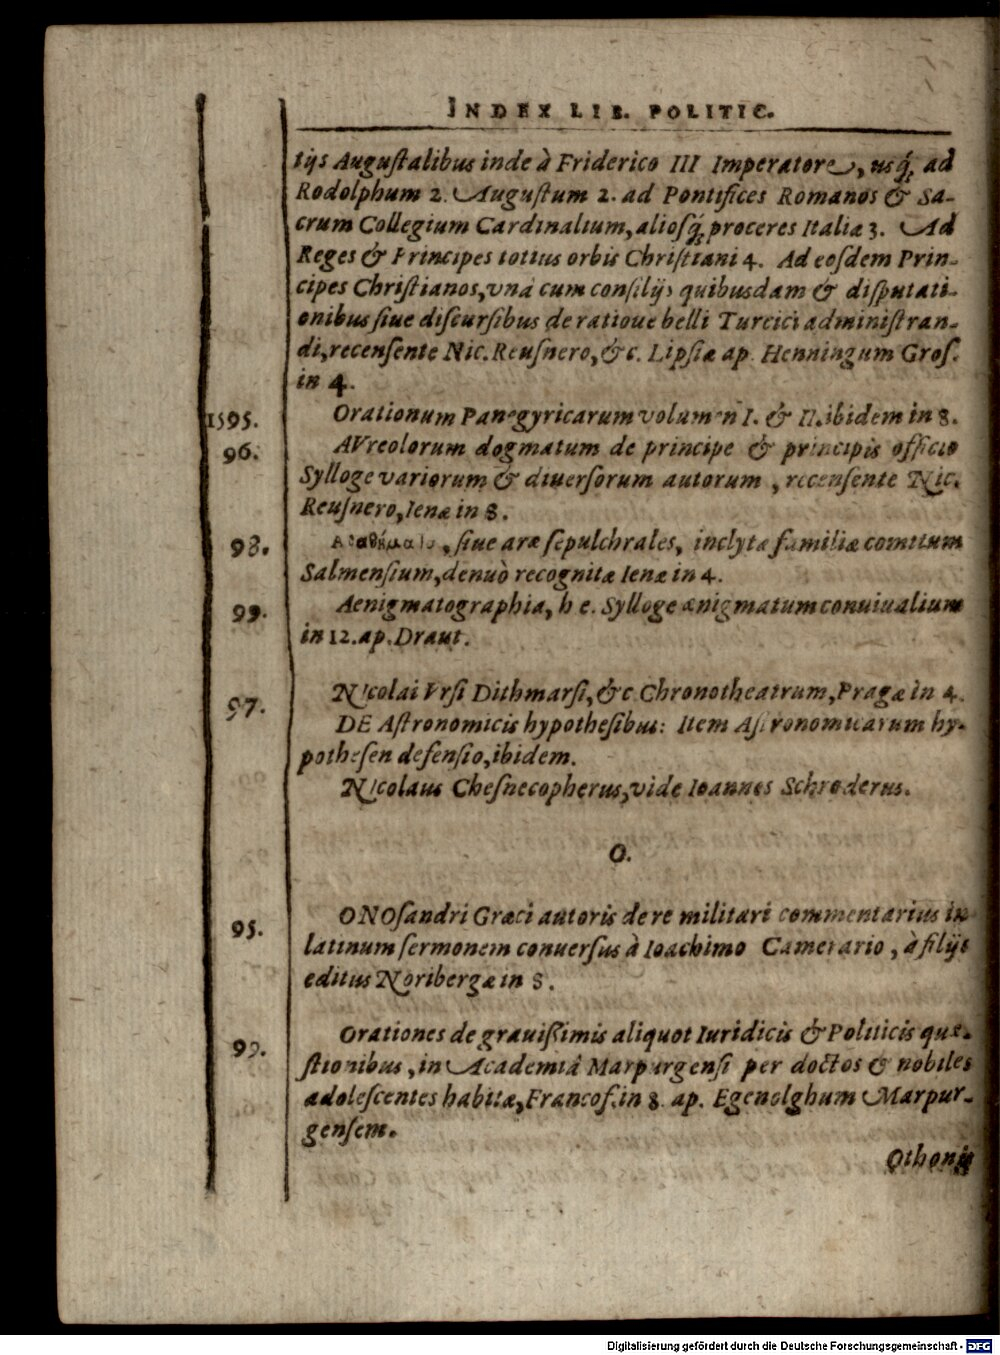 INDEX LIB. POLITIC.
tijs Augustalibus inde à Friderico III Imperatore, usq́; ad
Rodolphum 2. Augustum 2. ad Pontifices Romanos & Sa-
crum Collegium Cardinalium, aliosq́; proceres Italiæ 3. Ad
Reges & Principes totius orbis Christiani 4. Ad eosdem Prin-
cipes Christianos, vnà cum consilijs quibusdam & disputati-
onibus siue discursibus de ratioue belli Turcici administran-
di, recensente Nic. Reusnero, &c. Lipsiæ ap. Henningum Gros.
in 4.
1595. Orationum Panegyricarum volumen I. & II. ibidem in 8.
96. AVreolorum dogmatum de principe & principis officio
Sylloge variorum & diuersorum autorum, recensente Nic.
Reusnero, Ienæ in 8.
98. , siue aræ sepulchrales, inclytæ familiæ comitum
Salmensium, denuò recognitæ Ienæ in 4.
99. Aenigmatographia, h e. Sylloge ænigmatum conuiualium
in 12. ap. Draut.
97. NIcolai Vrsi Dithmarsi, &c Chronotheatrum, Pragæ in 4.
DE Astronomicis hypothesibus: Item Astronomicarum hy-
pothesen defensio, ibidem.
NIcolaus Chesnecopherus, vide Ioannes Schroderus.
O.
95. ONOsandri Græci autoris de re militari commentarius in
latinum sermonem conuersus à Ioachimo Camerario, à filijs
editus Noribergæ in 8.
99. Orationes de grauissimis aliquot Iuridicis & Politicis quæ-
stionibus, in Academiâ Marpurgensi per doctos & nobiles
adolescentes habitæ, Francof. in 8. ap. Egenolghum Marpur-
gensem.
Othonis
Digitalisierung gefördert durch die Deutsche Forschungsgemeinschaft - DFG